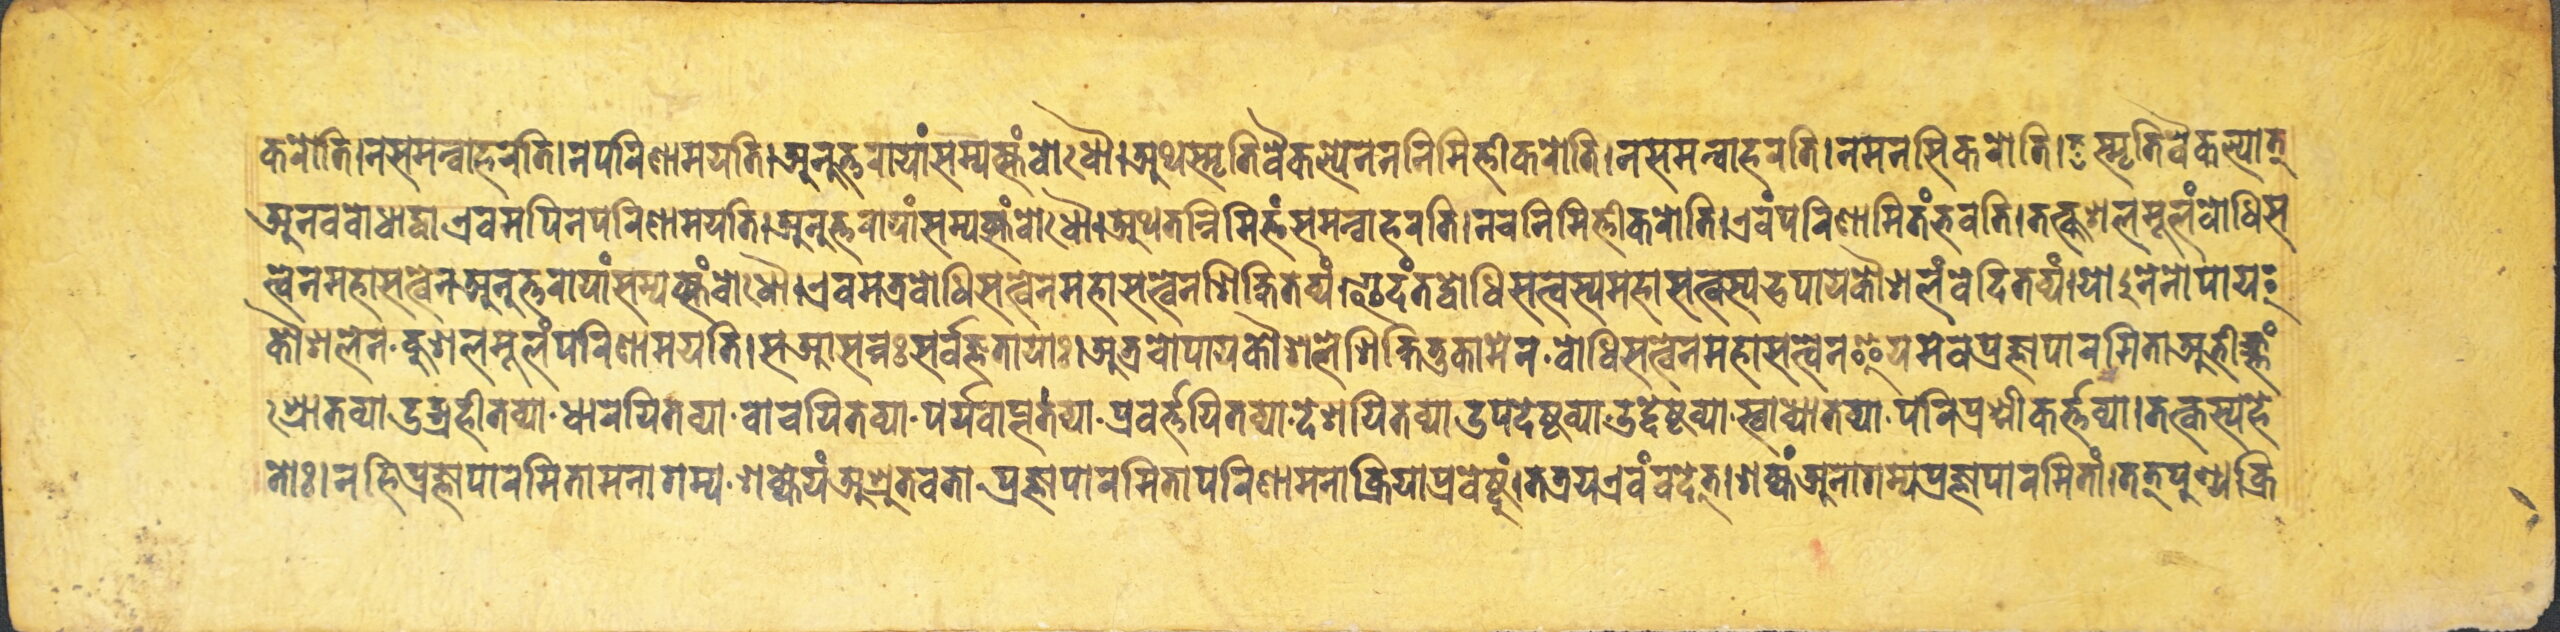 करोति।नसमन्वाहरति।नपरिणामयति।अनुत्तरायांसम्यक्संबोधौ।अथस्मृतिवैकल्येनननिमित्तीकरोति।नसमन्वाहरति।नमनसिकरोति।स्मृतिवैकल्यात्
अनवबोधाद्वाएवमपिनपरिणामयति।अनुत्तरायांसम्यक्संबोधौ।अथतन्निमित्तंसमन्वाहरति।नचनिमित्तीकरोति।एवंपरिणामितंभवति।तत्कुशलमूलंबोधिस
त्त्वेनमहासत्त्वेनअनुत्तरायांसम्यक्संबोधौ।एवमत्रबोधिसत्त्वेनमहासत्त्वेनशिक्षितव्यं इदंतद्बोधिसत्त्वस्यमहासत्त्वस्यउपायकौशलंवेदितव्यं।योऽनेनोपाय
कौशलेन·कुशलमूलंपरिणामयति।सआसन्नःसर्वज्ञतायाः।अत्रचोपायकौशलेशिक्षितुकामेन·बोधिसत्त्वेनमहासत्त्वेनइयमेवप्रज्ञापारमिताअभीक्ष्णं
श्रोतव्याउद्ग्रहीतव्या·धारयितव्या·वाचयितव्या·पर्यवाप्तव्या·प्रवर्त्तयितव्या·देशयितव्याउपदेष्टव्याउद्देष्टव्या·स्वाध्यातव्या·परिप्रश्नीकर्त्तव्या।तत्कस्यहे
तोः।नहिप्रज्ञापारमितामनागम्य·शक्येयंअश्रुतवता·प्रज्ञापारमितापरिणामनाक्रियाप्रवेष्टुं।तत्रयएवंवदेत्।शक्यंअनागम्यप्रज्ञापारमितां।तत्पुण्यक्रि